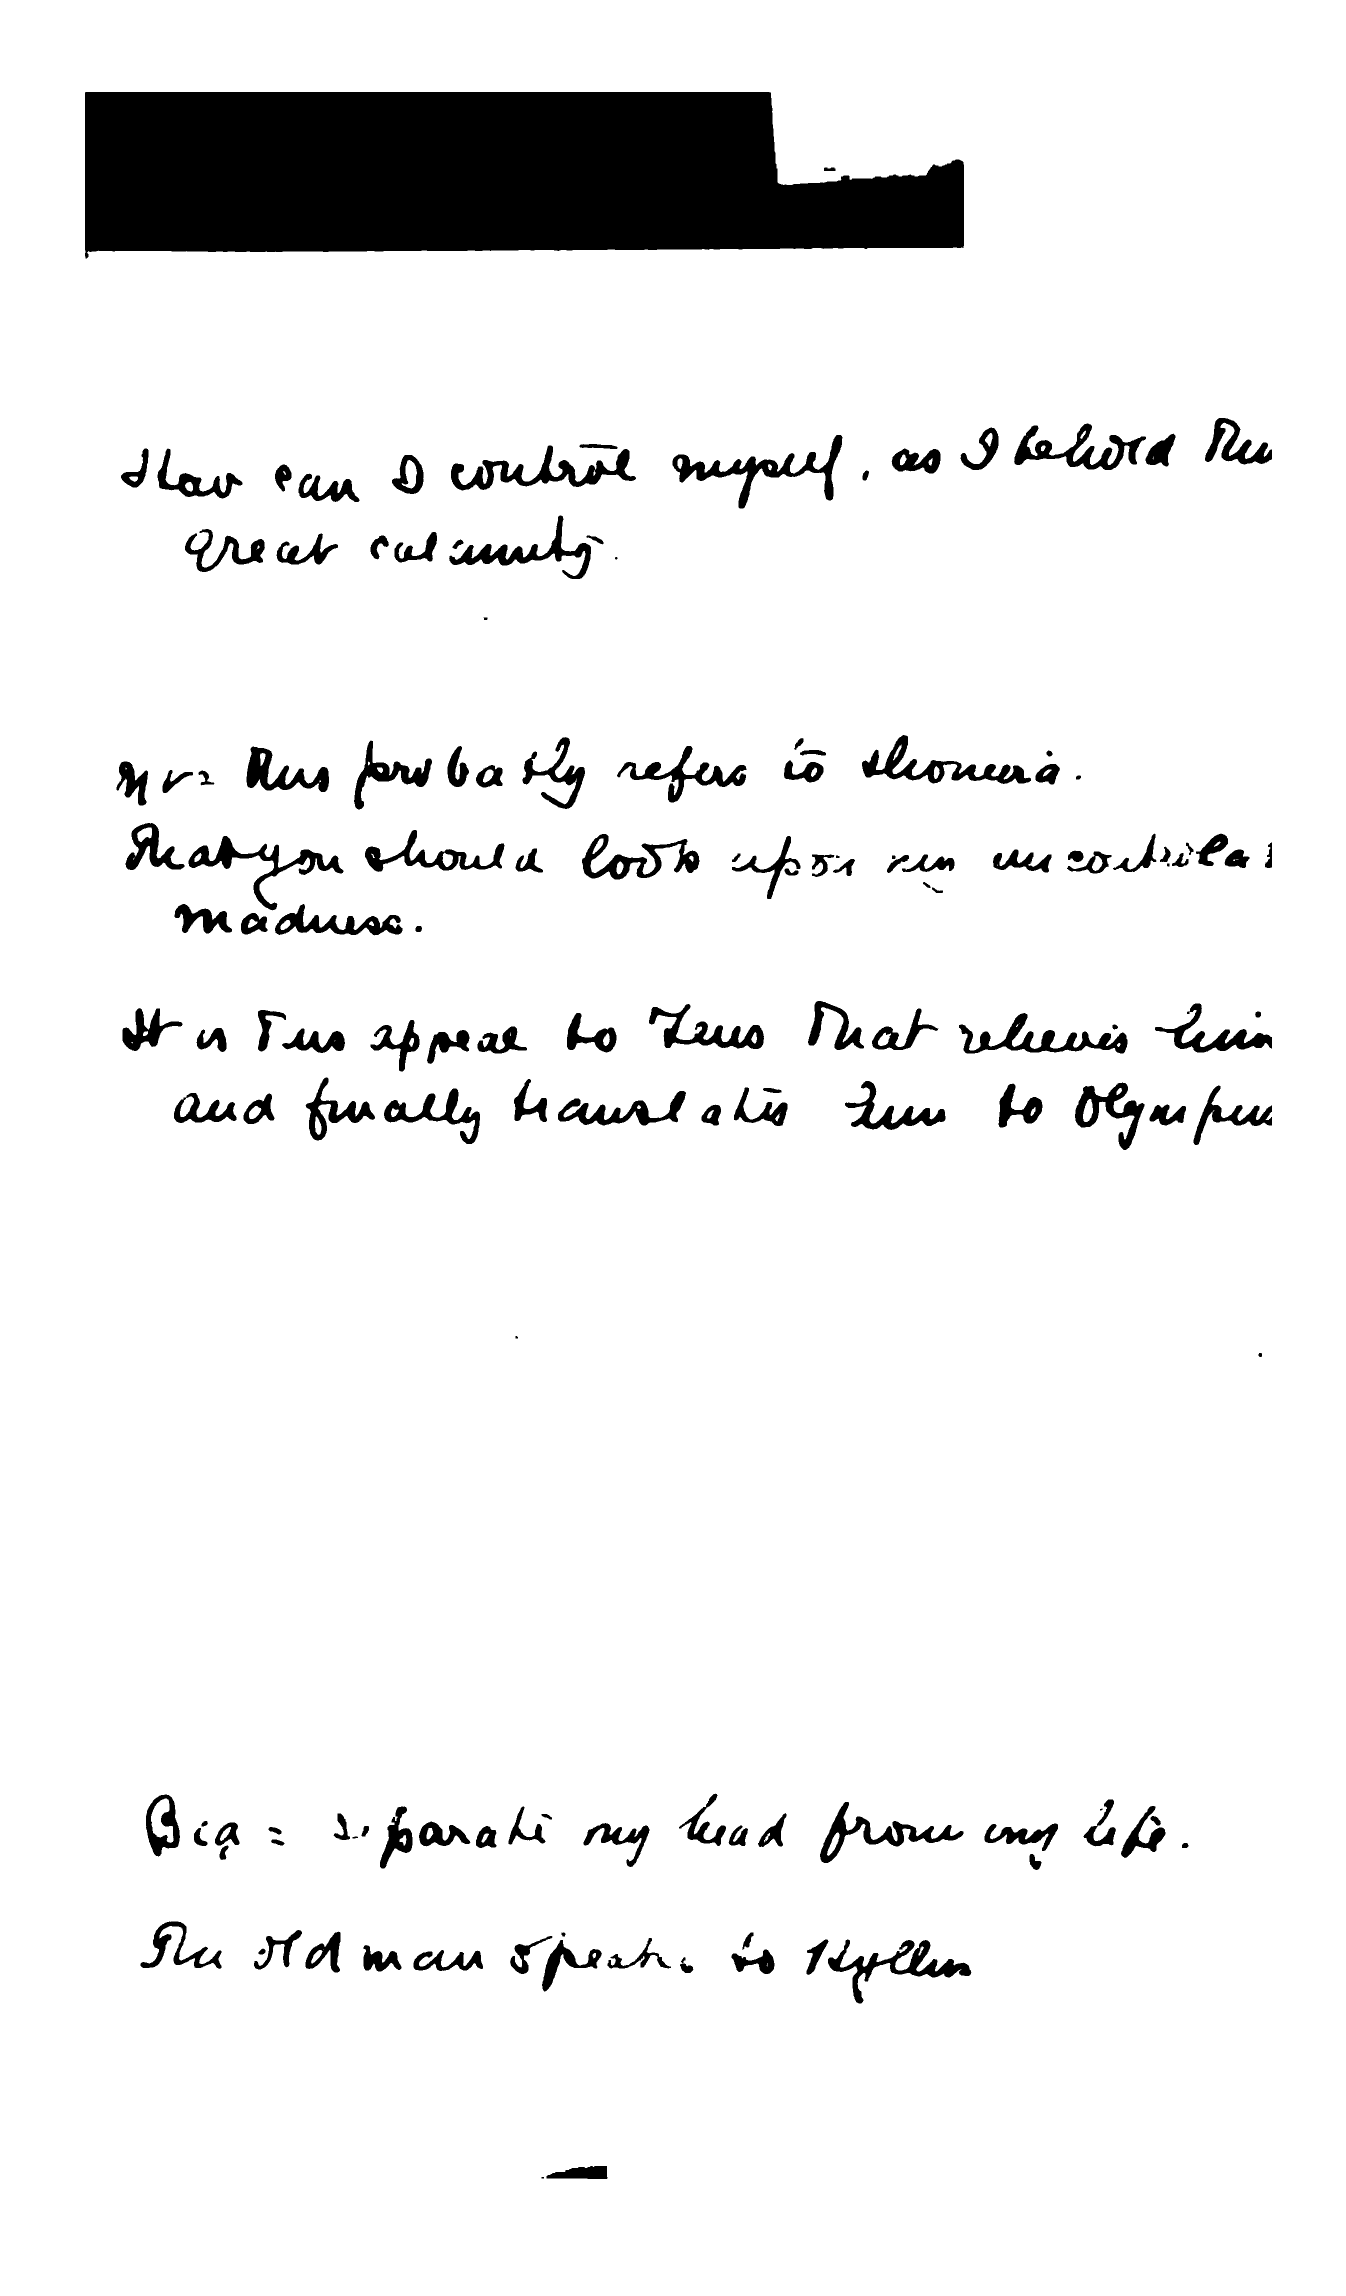 How can I control myself, as I behold this
great calamity.
ἣν = this probably refers to
That you should look upon my uncontrolla
madness.
It is this appeal to Zeus that relieves him
and finally translates him to Olympus
βίᾳ = separate my head from my life.
The old man speaks to Hyllus